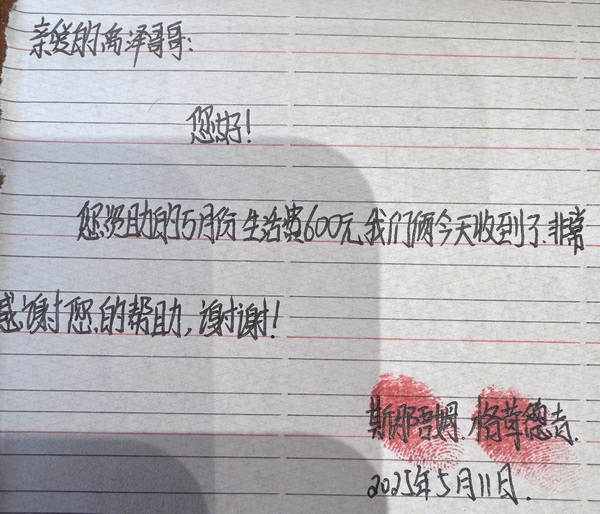 亲爱的禹泽哥哥:
您好!
您资助的5月份生活费600元,我们俩今天收到了.非常
感谢您的帮助,谢谢!
斯那吾姆.格草德吉.
2025年5月11日.